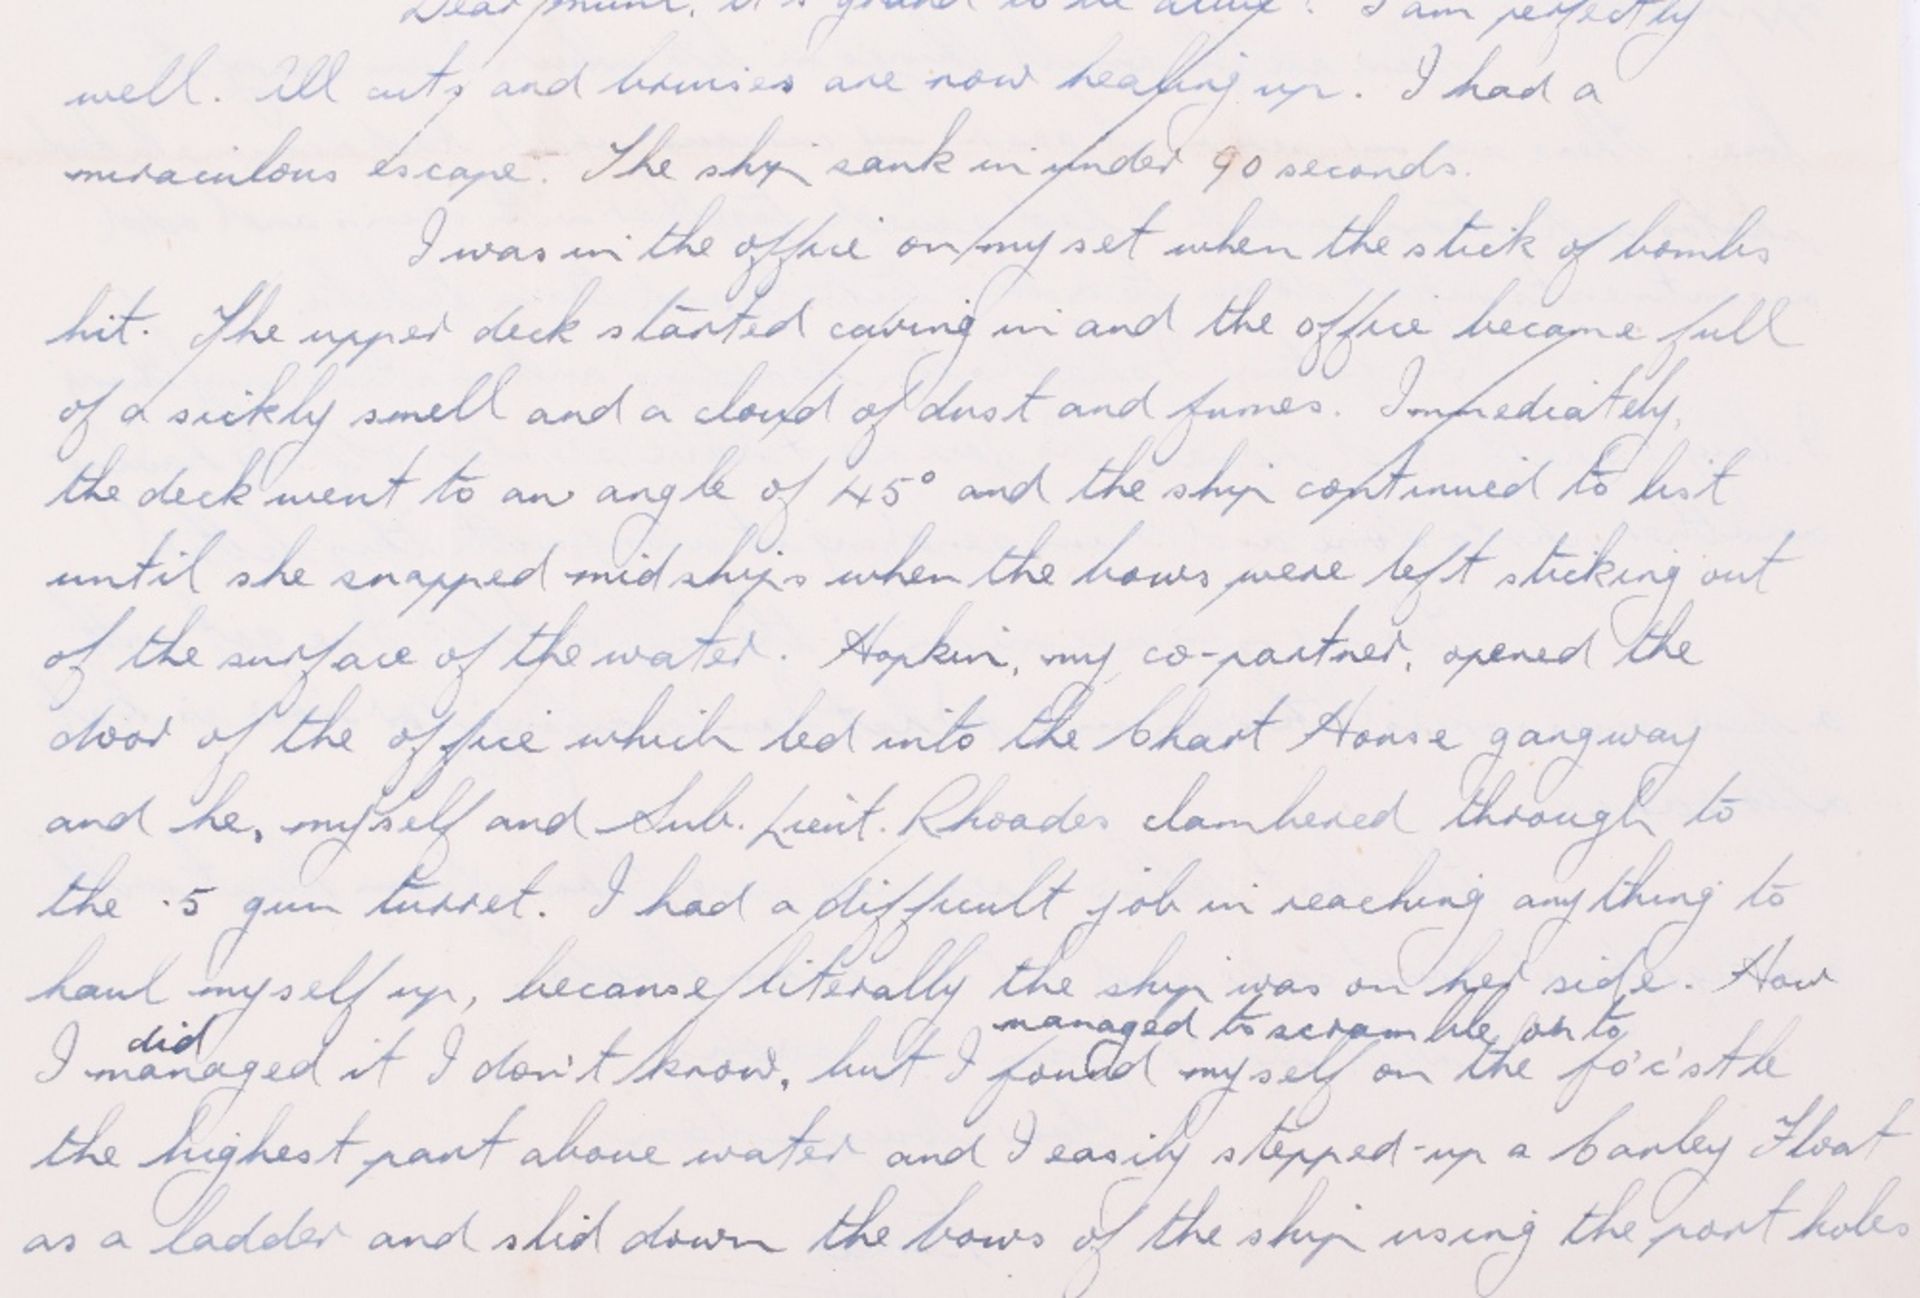 Dear Mum, it's grand to be alive! I am perfectly
well. All cuts and bruises are now healing up. I had a
miraculous escape. The ship sank in under 90 seconds.
I was in the office on my set when the stick of bombs
hit. The upper deck started caving in and the office became full
of a sickly smell and a cloud of dust and fumes. Immediately,
the deck went to an angle of 45° and the ship continued to list
until she snapped midships when the bows were left sticking out
of the surface of the water. Hopkin, my co-partner, opened the
door of the office which led into the Chart House gangway
and he, myself and Sub. Lieut. Rhoades clambered through to
the .5 gun turret. I had a difficult job in reaching anything to
haul myself up, because literally the ship was on her side. How
did managed to scramble on to
I managed it I don't know, but I found myself on the fo'c'stle
the highest part above water and I easily stepped-up a Carley Float
as a ladder and slid down the bows of the ship using the port holes